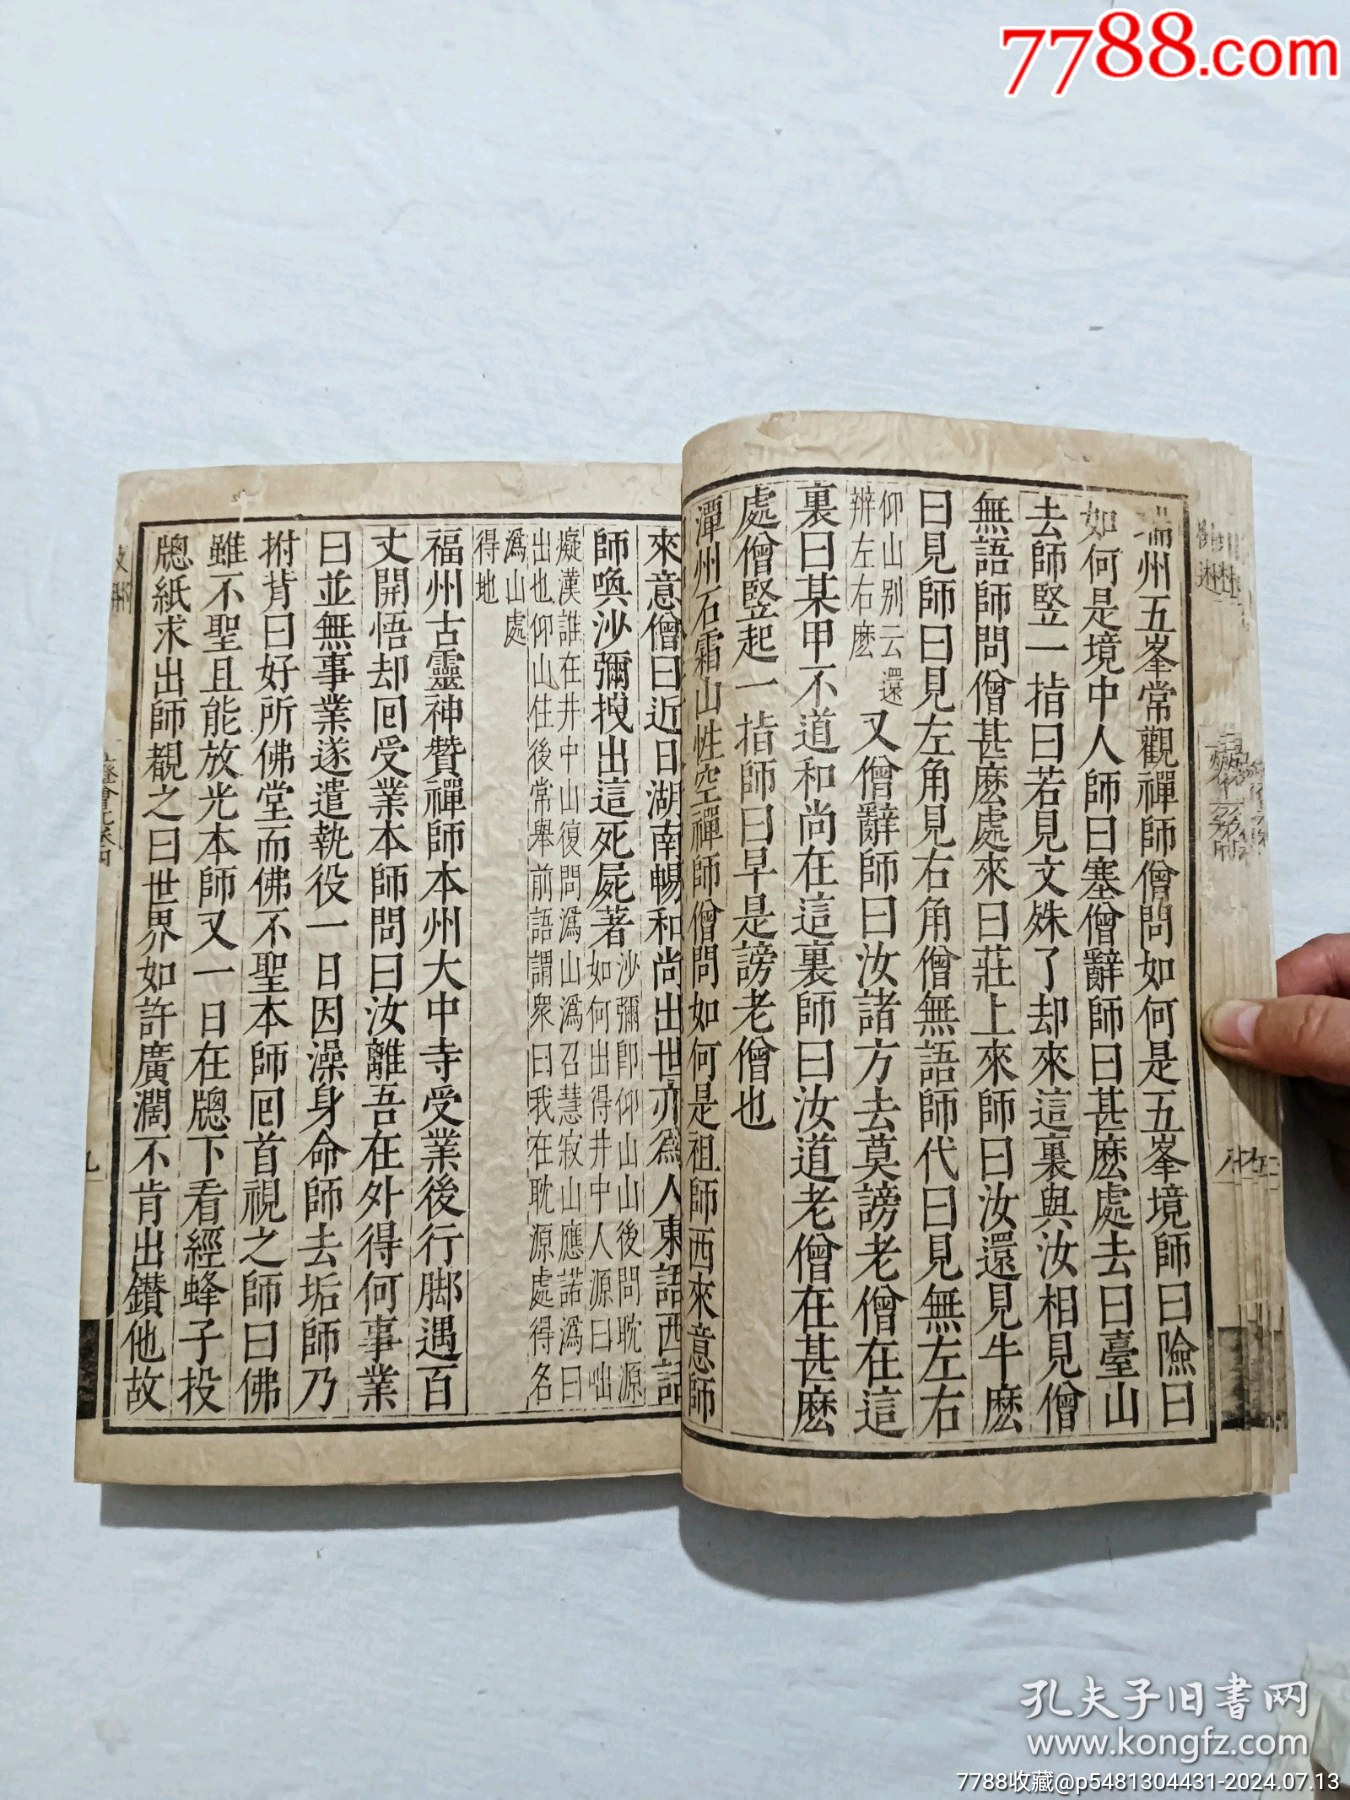 7788.com
瑞州五峯常觀禪師僧問如何是五峯境師曰險曰
如何是境中人師曰塞僧辭師曰甚麽處去曰臺山
去師竪一指曰若見文殊了却來這裏與汝相見僧
無語師問僧甚麽處來曰莊上來師曰汝還見牛麽
曰見師曰見左角見右角僧無語師代曰見無左右
仰山别云還
辨左右麽
又僧辭師曰汝諸方去莫謗老僧在這
裏曰某甲不道和尚在這裏師曰汝道老僧在甚麽
處僧竪起一指師曰早是謗老僧也
潭州石霜山性空禪師僧問如何是祖師西來意師
來意僧曰近日湖南暢和尚出世亦爲人東語西話
師喚沙彌拽出這死屍著
沙彌卽仰山山後問耽源
如何出得井中人源曰咄
癡漢誰在井中山復問溈山溈召慧寂山應諾溈曰
出也仰山住後常舉前語謂衆曰我在耽源處得名
溈山處
得地
福州古靈神贊禪師本州大中寺受業後行脚遇百
丈開悟却回受業本師問曰汝離吾在外得何事業
曰並無事業遂遣執役一日因澡身命師去垢師乃
拊背曰好所佛堂而佛不聖本師回首視之師曰佛
雖不聖且能放光本師又一日在牕下看經蜂子投
牕紙求出師覩之曰世界如許廣濶不肯出鑽他故
孔夫子旧書网
www.kongfz.com
7788收藏@p5481304431-2024.07.13